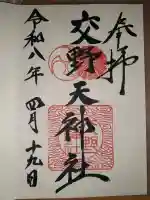 奉拝
交野天神社
令和八年四月十九日